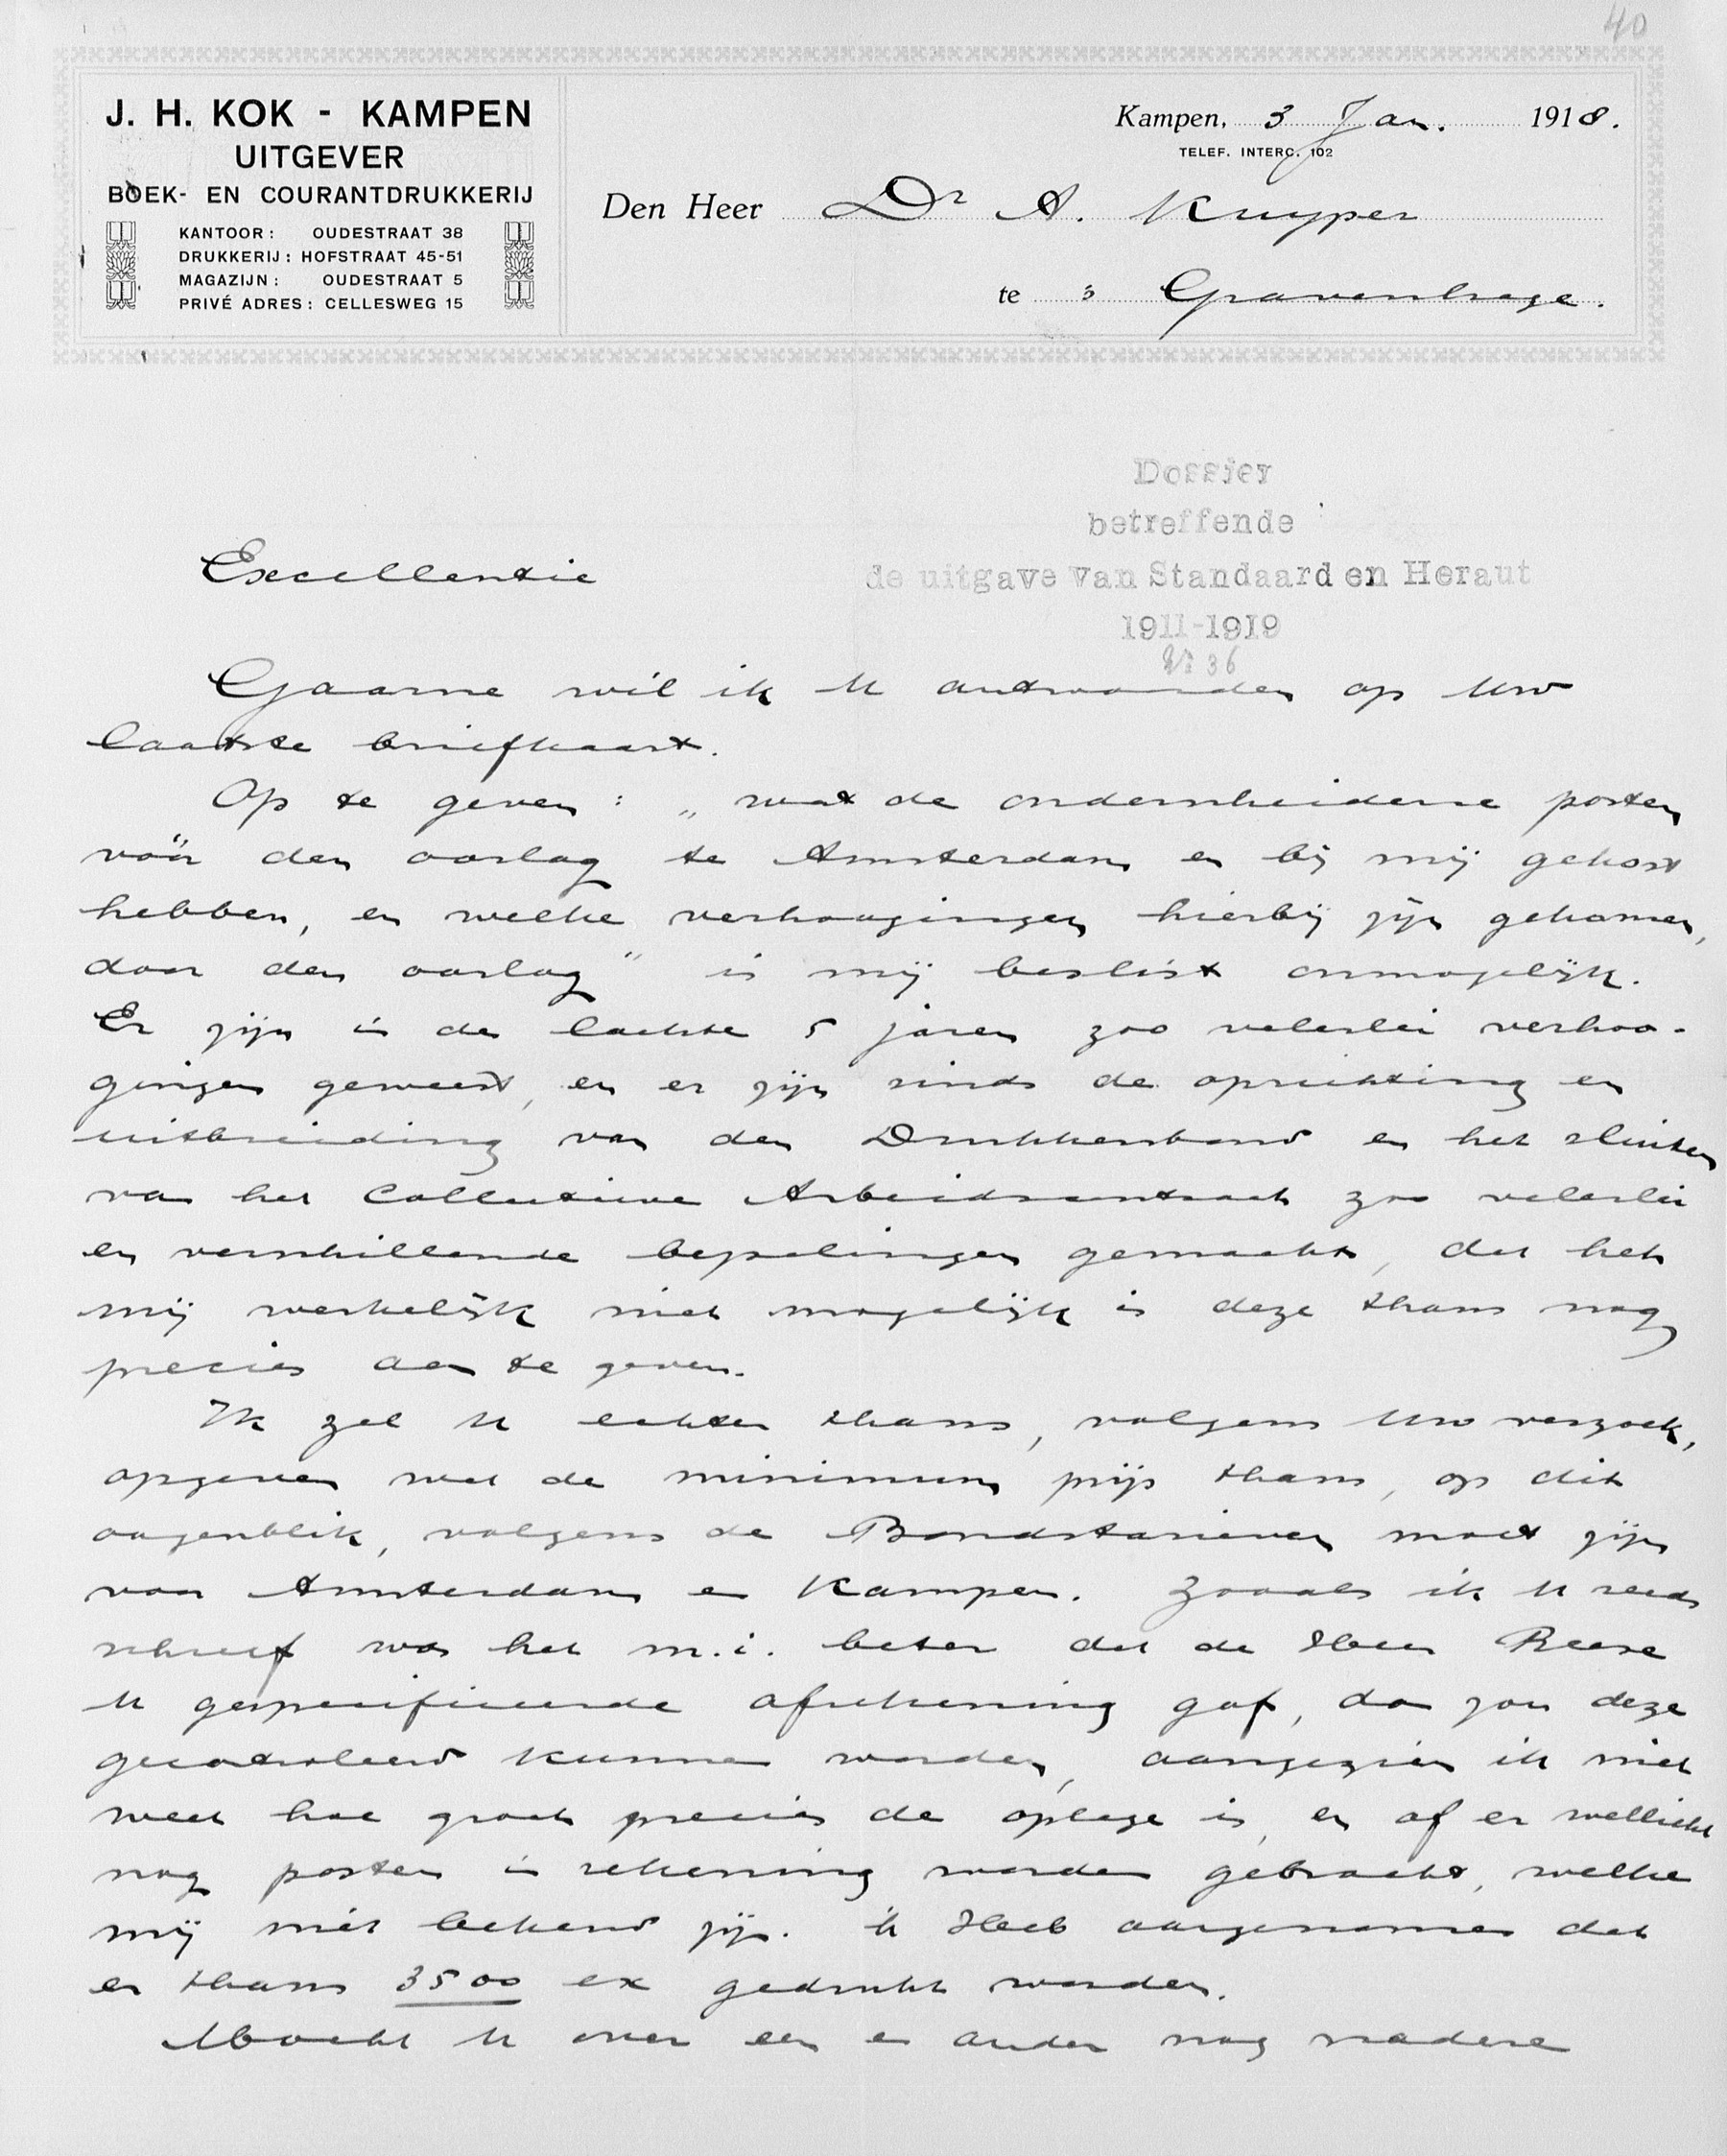 40
J. H. KOK - KAMPEN
UITGEVER
BOEK- EN COURANTDRUKKERIJ
KANTOOR: OUDESTRAAT 38
DRUKKERIJ: HOFSTRAAT 45-51
MAGAZIJN: OUDESTRAAT 5
PRIVÉ ADRES: CELLESWEG 15
Kampen, 3 Jan. 1918.
TELEF. INTERC. 102
Den Heer Dr A. Kuyper
te 's Gravenhage.
Dossier
betreffende
de uitgave van Standaard en Heraut
1911-1919
No 36
Excellentie
Gaarne wil ik U antwoorden op Uw
laatste briefkaart.
Op te geven: „wat de onderscheidene posten
vóór den oorlog te Amsterdam en bij mij gekost
hebben, en welke verhoogingen hierbij zijn gekomen,
door den oorlog" is mij beslist onmogelijk.
Er zijn in de laatste 5 jaren zoo velerlei verhoo-
gingen geweest, en er zijn sinds de oprichting en
uitbreiding van den Drukkersbond en het sluiten
van het Collectieve Arbeidscontract zoo velerlei
en verschillende bepalingen gemaakt, dat het
mij werkelijk niet mogelijk is deze thans nog
precies aan te geven.
Ik zal U echter thans, volgens Uw verzoek,
opgeven wat de minimum prijs thans, op dit
oogenblik, volgens de Bondstarieven moet zijn
voor Amsterdam en Kampen. Zooals ik U reeds
schreef was het m.i. beter dat de Heer Reese
U gespecificeerde afrekening gaf, dan zou deze
gecontroleerd kunnen worden, aangezien ik niet
weet hoe groot precies de oplage is, en of er wellicht
nog posten in rekening worden gebracht, welke
mij niet bekend zijn. Ik Heb aangenomen dat
er thans 3500 ex gedrukt worden.
Mocht U over een en ander nog nadere